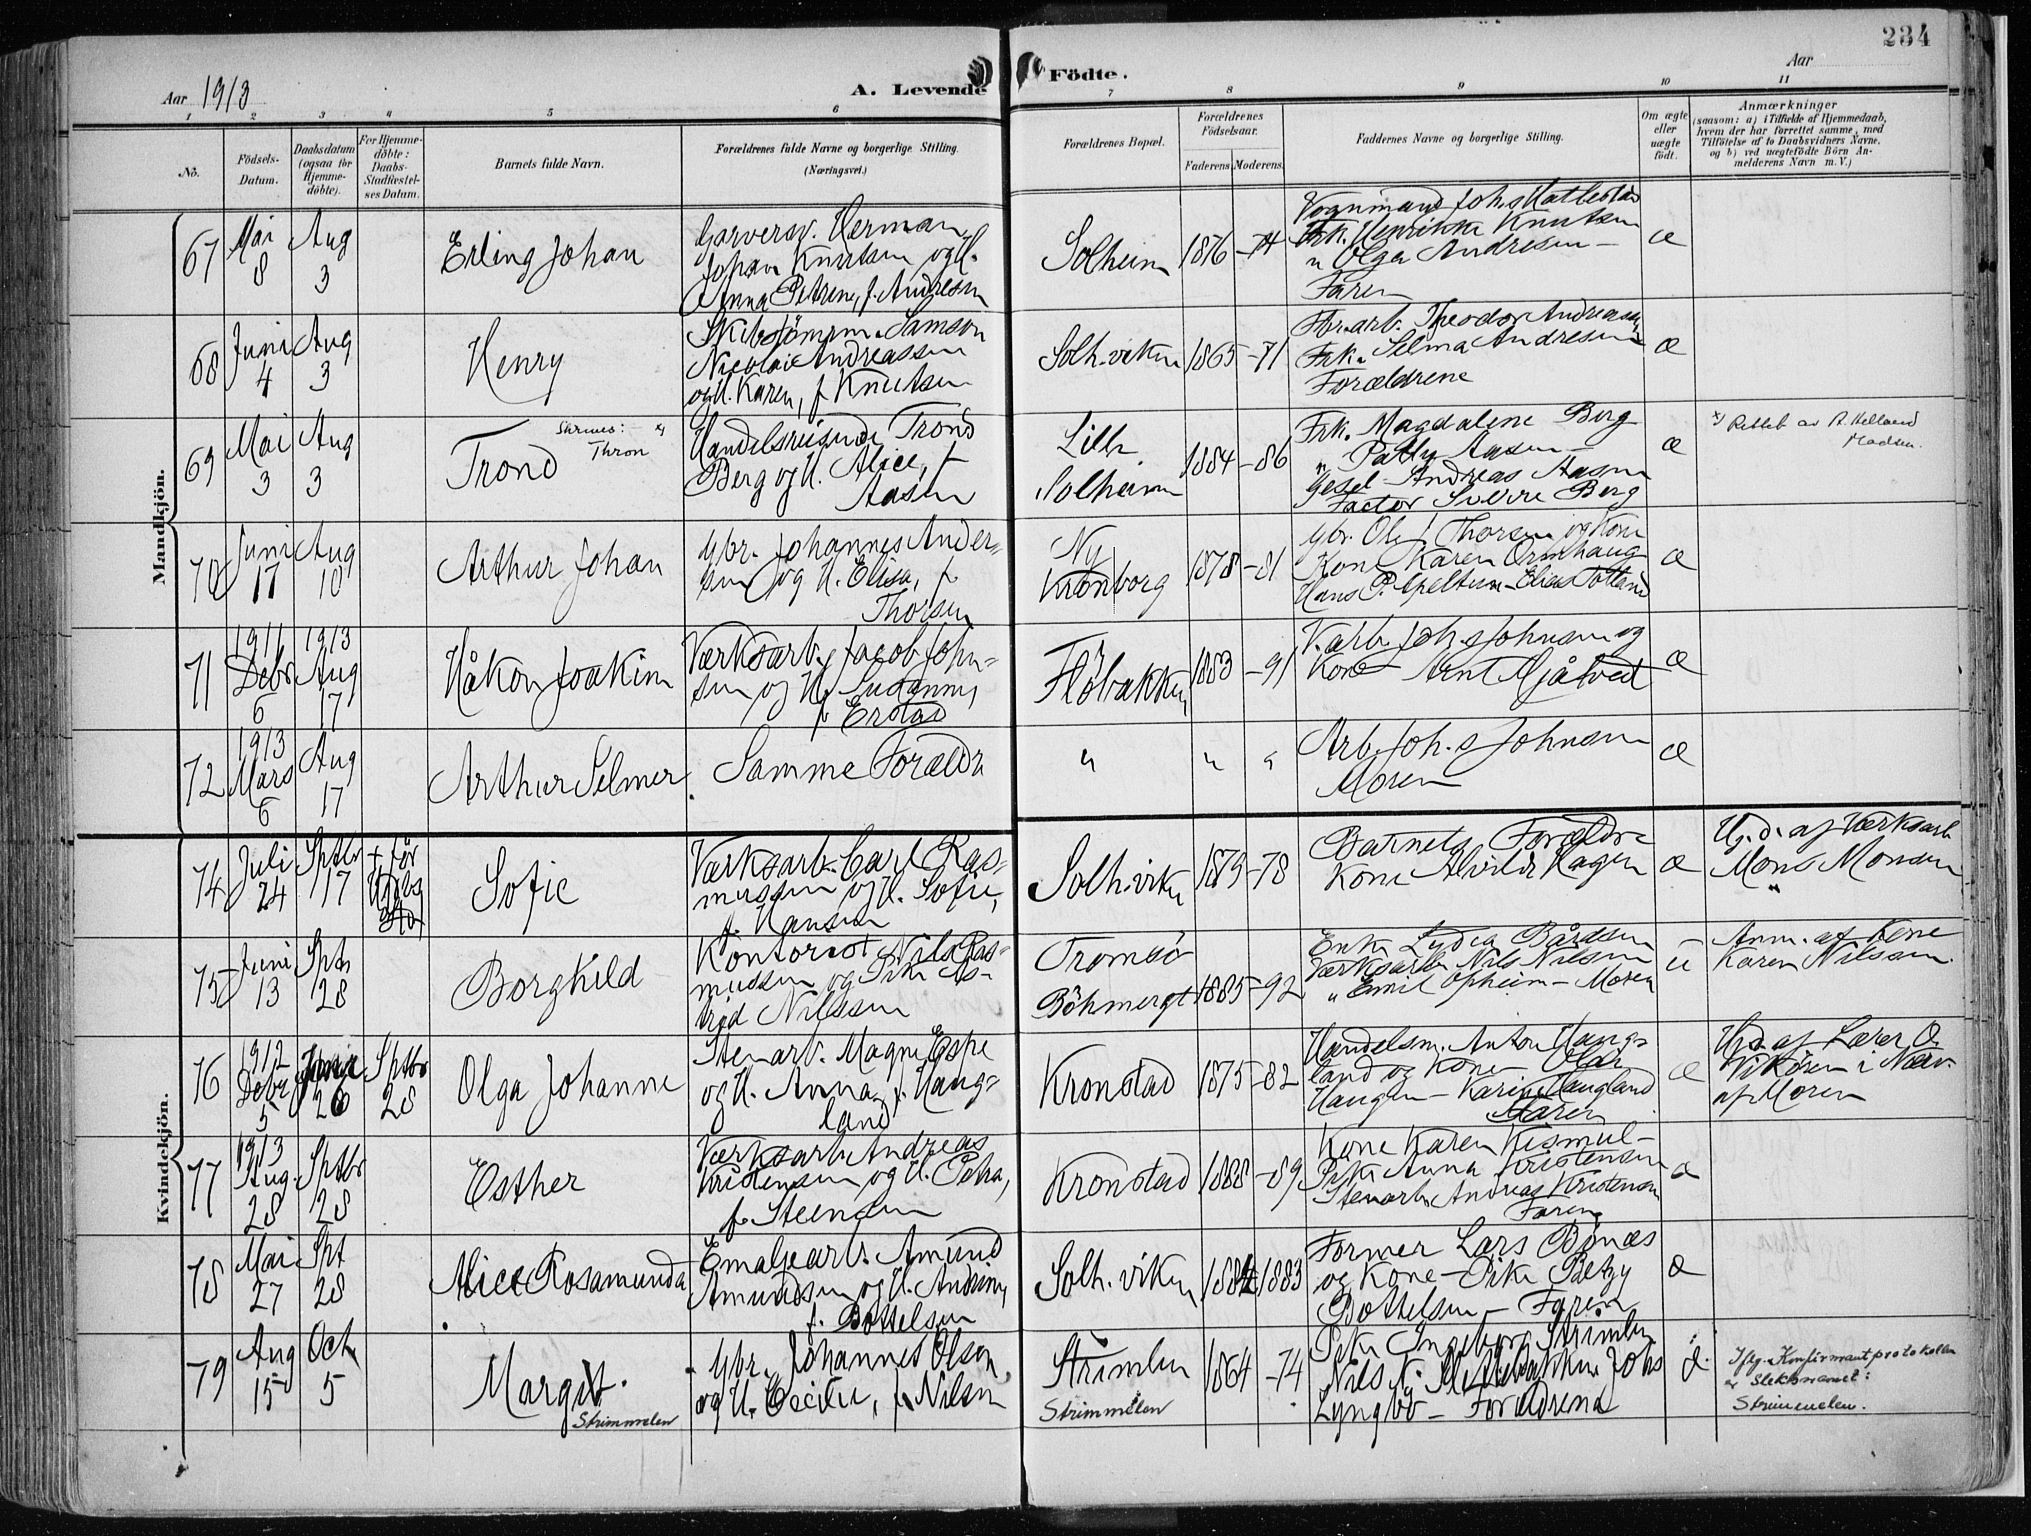 234
Aar 1913
A. Levende Födte.
Aar
1 2 3 4 5 6 7 8 9 10 11
No.
Födsels-Datum.
Daabsdatum (ogsaa for Hjemme-döbte).
For Hjemme-döbte: Daabs-Stadfæstel-ses Datum.
Barnets fulde Navn.
Forældrenes fulde Navne og borgerlige Stilling.
(Næringsvei.)
Forældrenes Bopæl.
Forældrenes Födselsaar.
Faderens Moderens.
Faddernes Navne og borgerlige Stilling.
Om ægte eller uægte födt.
Anmærkninger
(saasom: a) i Tilfælde af Hjemmedaab, hvem der har forrettet samme, med Tilföielse af to Daabsvidners Navne, og b) ved uægtefödte Börn An-melderens Navn m. V.)
Mandkjön.
67 Mai 8 Aug 3
Erling Johan
Garversv. Herman
Johan Knutsen og H.
Anna Petrine, f. Andresen
Solheim 1876 -74
Vognmand Joh.
Frk. Henrikke Knutsen
" Olga Andresen -
Faren
æ
68 Juni 4 Aug 3
Henry
Skibstømrm. Samson
Nicolai Andreassen
og H. Karen, f. Knutsen
Solh.viken 1865 -71
Theodor Andreassen
Frk. Selma Andresen
Forældrene
æ
69 Mai 3 Aug 3
Trond
Skrives: Thron x)
Handelsreisende Trond
Berg og H. Alice, f.
Aasen
Lille
Solheim 1884 -86
Frk. Magdalene Berg
" Pally Aasen -
Gesel Andreas Aasen
Factor Sverre Berg
æ
x) Rettet av R. Helland
Madsen.
70 Juni 17 Aug 10
Arthur Johan
Gbr. Johannes Ander-
sen og H. Elisa, f.
Thorsen
Ny
Krønborg 1878 -81
Gbr. Ole J. Thorsen og Kone
Kone Karen Ormhaug
Hans P. Apeltun - Elias Totland
æ
71 1911 Debr 6 1913 Aug 17
Håkon Joakim
Værksarb. Jacob John-
sen og H. Susanne,
f. Erstad
Fløbakken 1883 -91
V.arb. Joh.s Johnsen og
Kone - Arnt Mjåtved
æ
72 1913 Mars 6 Aug 17
Arthur Selmer
Samme Forældr
" " "
Arb. Joh.s Johnsen
Moren
æ
Kvindekjön.
74 Juli 24 Sptbr 17
Sofie
Værksarb. Carl Ras-
mussen og H. Sofie,
f. Hansen
Solh.viken 1879 -78
Barnets Forældre
Kone Alvilde Hagen
æ
Hj.d. af Værksarb
Mons Monsen
75 Juni 13 Sptr 28
Borghild
Kontorist Nils Ras-
mussen og Pike As-
trid Nilssen
Tromsø
Böhmergt 1885 -92
Enke Lydia Bårdsen
Værksarb. Nils Nilsen
" Emil Opheim - Moren
u
Anm. af Kone
Karen Nilssen.
76 1912 Debr 5 Juni 26 Sptbr 28
Olga Johanne
Stenarb. Magne Espe
og H. Anna, f. Haug-
land
Kronstad 1875 -82
Handelsm. Anton Haug-
land og Kone
Haugen - Karin Haugland
Faren
æ
Hj.d. af Lærer O.
Vikøren i Nærv.
af Moren
77 1913 Aug. 28 Sptbr 28
Esther
Værksarb Andreas
Kristensen og H. Petra,
f. Steensen
Kronstad 1888 -89
Kone Karen Kismul -
Pike Anna Kristensen
Stenarb. Andreas Kristensen
Faren
æ
78 Mai 27 Spt 28
Alice Rosamunda
Emaljearb. Amund
Amundsen og H. Andrine,
f. Bottelsen
Solh.viken 1882 1883
Former Lars Bønæs
og Kone - Pike Betzy
Bottelsen - Faren
æ
79 Aug 15 Oct. 5
Margit.
Strimmelen
Gbr. Johannes Olson
og H. Cecilie, f. Nilsen
Strimlen
Strimmelen
1864 -74
Pike Ingeborg Strimlen
Nils N. Slettebakken Johs
Lyngbø - Forældrene
æ.
Iflg. Konfirmantprotokollen
er Slektsnavnet:
Strimmelen.